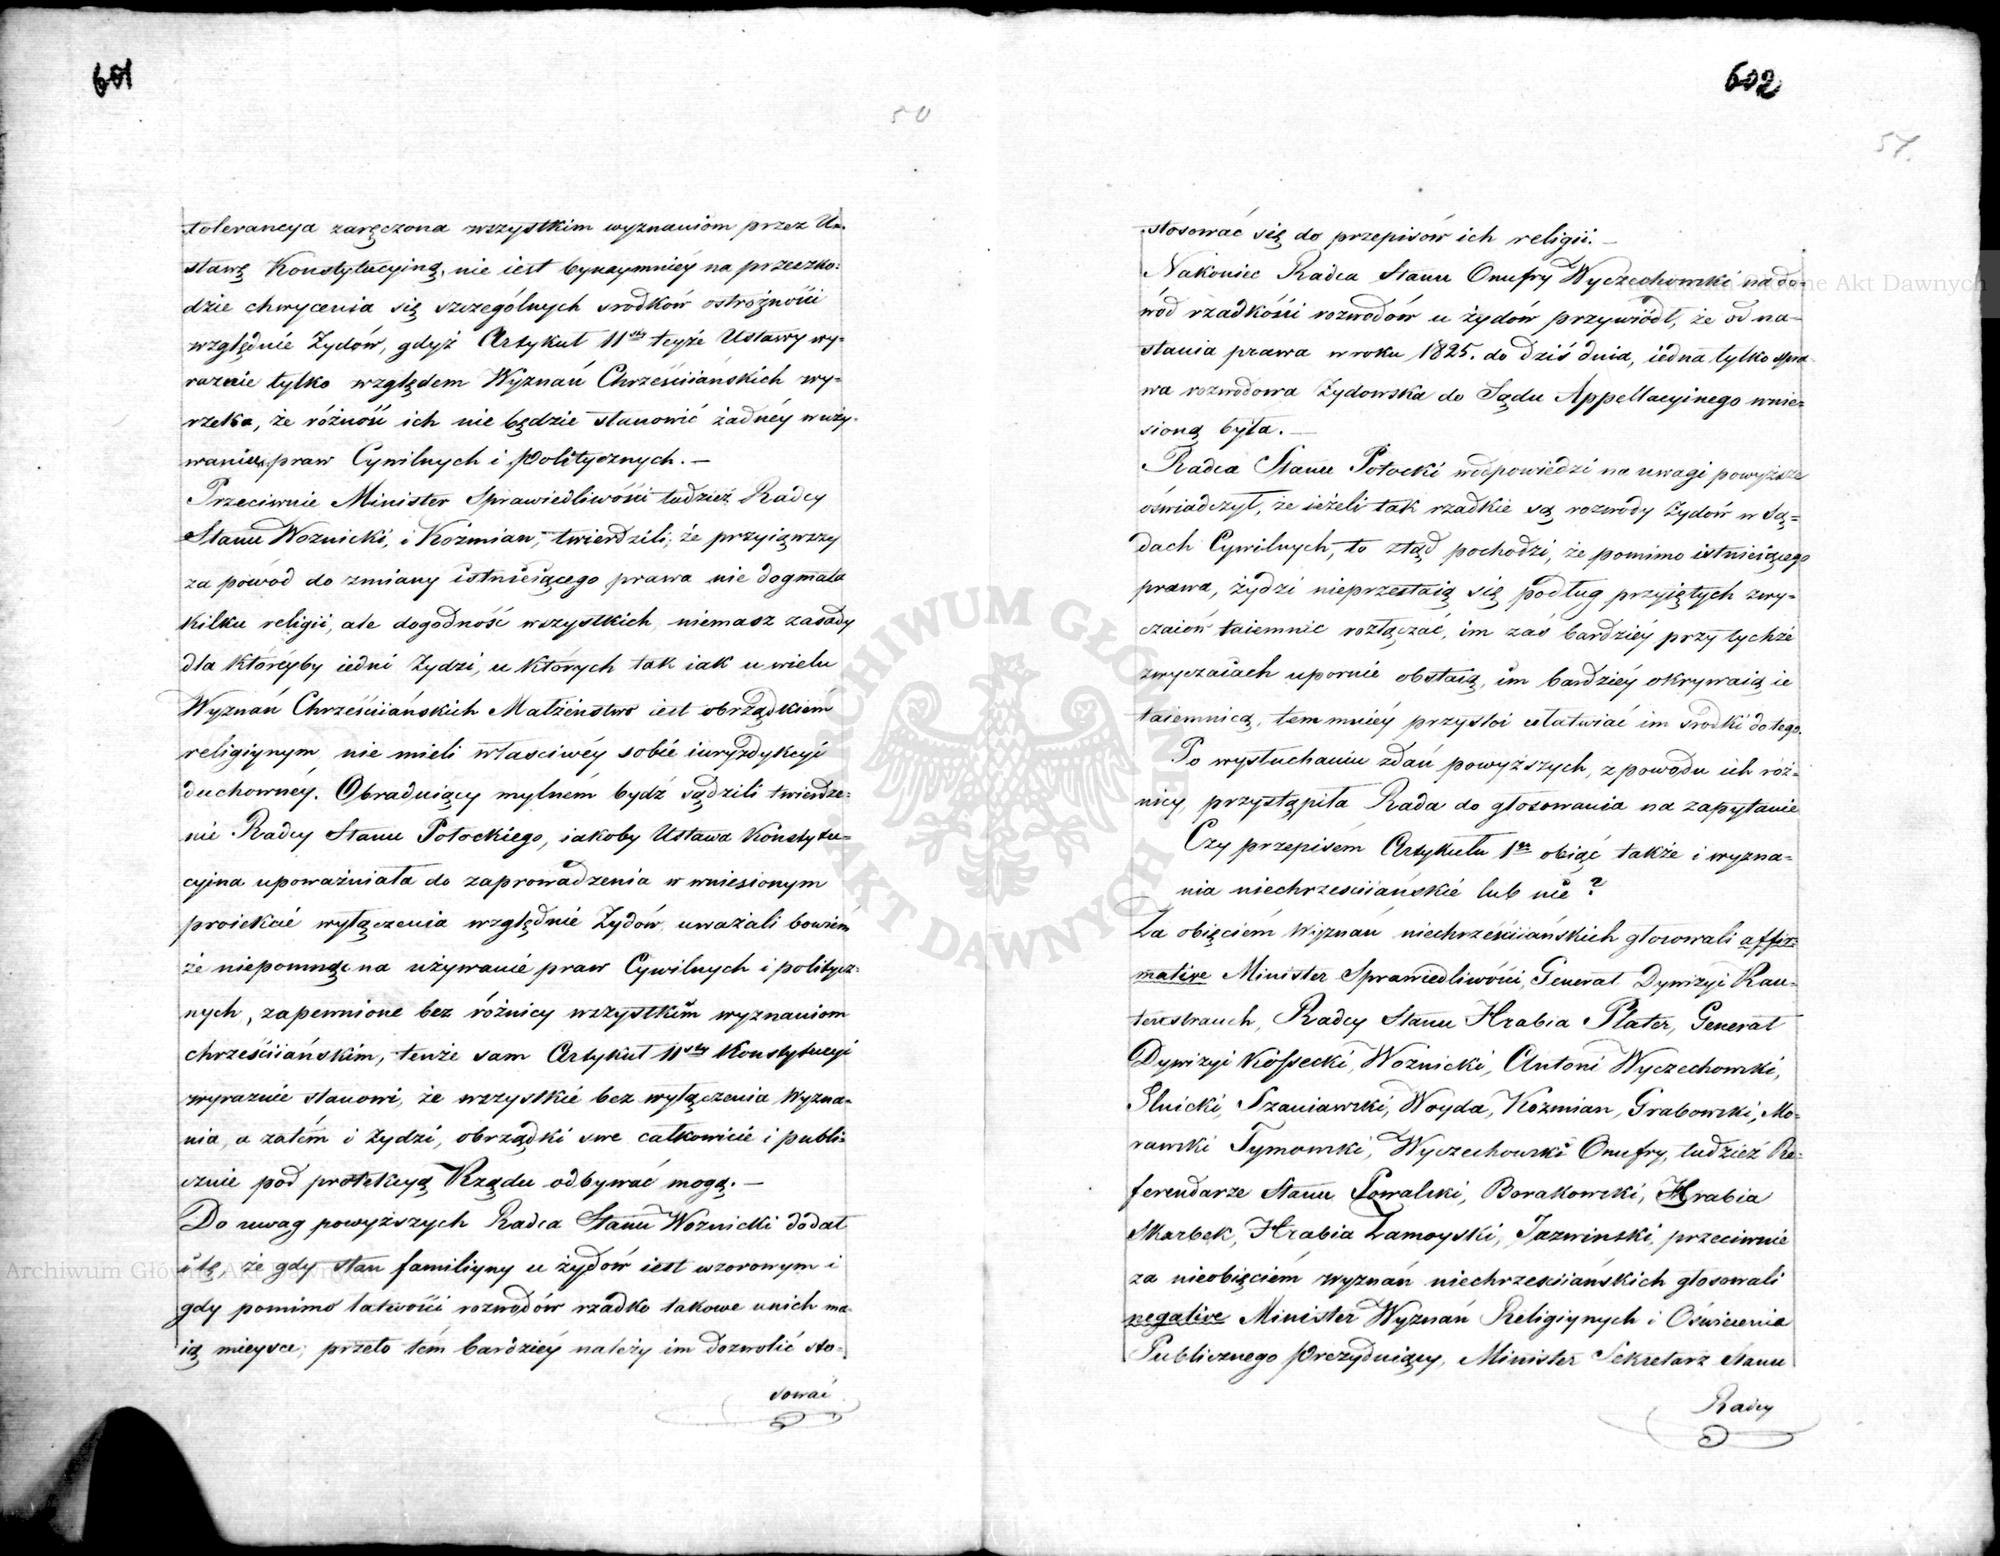 601
50
tolerancya zaręczona wszystkim wyznaniom przez U=
stawę Konstytucyiną, nie iest bynaymniéy na przeszko=
dzie chwycenia się szczególnych srodków ostrożności
względnie Żydów, gdyż Artykuł 11sty teyże Ustawy wy=
raznie tylko względem Wyznań Chrześciiańskich wy=
rzekła, że różność ich nie będzie stanowić żadnéy w uży=
waniu praw Cywilnych i Politycznych. —
Przeciwnie Minister Sprawiedliwości tudzież Radcy
Stanu Woznicki, i Kozmian, twierdzili, że przyiąwszy
za powod do zmiany istnieiącego prawa nie dogmata
kilku religii, ale dogodność wszystkich, niemasz zasady
dla któréyby iedni Żydzi, u których tak iak u wielu
Wyznań Chrześciiańskich Małżeństwo iest obrządkiem
religiynym, nie mieli własciwéy sobie iuryzdykcyi
duchownéy. Obraduiący mylném bydź sądzili twierdze=
nie Radcy Stanu Potockiego, iakoby Ustawa Konstytu=
cyina upoważniała do zaprowadzenia w wniesionym
proiekcie wyłączenia względnie Żydów, uważali bowiem
że niepomnąc na używanie praw Cywilnych i politycz=
nych, zapewnione bez różnicy wszystkim wyznaniom
chrześciiańskim, tenże sam Artykuł 11sty Konstytucyi
wyraznie stanowi, że wszystkie bez wyłączenia Wyzna=
nia, a zatém i Żydzi, obrządki swe całkowicie i publi=
cznie pod protekcyą Rządu odbywać mogą. —
Do uwag powyższych Radca Stanu Woznicki dodał
i tę, że gdy stan familiyny u żydów iest wzorowym i
gdy pomimo łatwości rozwodów rzadko takowe u nich ma=
ią mieysce, przeto tém bardziéy należy im dozwolić sto=
sować
602
51.
stosować się do przepisów ich religii. —
Nakoniec Radca Stanu Onufry Wyczechowski na do=
wód rzadkości rozwodów u żydów przywiódł, że od na=
stania prawa w roku 1825. do dziś dnia, iedna tylko spra=
wa rozwodowa Żydowska do Sądu Appellacyinego wnie=
sioną była. —
Radca Stanu Potocki w odpowiedzi na uwagi powyższe
oświadczył, że ieżeli tak rzadkie są rozwody Żydów w Są=
dach Cywilnych, to ztąd pochodzi, że pomimo istnieiącego
prawa, żydzi nieprzestaią się podług przyiętych zwy=
czaiów taiemnie rozłączać, im zaś bardziéy przy tychże
zwyczaiach upornie obstaią, im bardziéy okrywaią ie
taiemnicą, tem mniéy przystoi ułatwiać im środki do tego.
Po wysłuchaniu zdań powyższych, z powodu ich róż=
nicy, przystąpiła Rada do głosowania na zapytanie
Czy przepisem Artykułu 1go obiąć także i wyzna=
nia niechrzesciiańskie lub nie?
Za obięciem Wyznań niechrześciiańskich głosowali affir=
mative Minister Sprawiedliwości, Generał Dywizyi Rau=
tenstrauch, Radcy Stanu Hrabia Plater, Generał
Dywizyi Kossecki, Woźnicki, Antoni Wyczechowski,
Slnicki, Szaniawski, Woyda, Kozmian, Grabowski, Mo=
rawski Tymowski, Wyczechowski Onufry, tudzież Re=
ferendarze Stanu Kowalski, Borakowski, Hrabia
Skarbek, Hrabia Zamoyski, Jazwinski, przeciwnie
za nieobięciem wyznań niechrzesciiańskich głosowali
negative Minister Wyznań Religiynych i Oświecenia
Publicznego Prezyduiący, Minister Sekretarz Stanu
Radcy
ARCHIWUM GŁÓWNE AKT DAWNYCH
Archiwum Główne Akt Dawnych
Archiwum Główne Akt Dawnych